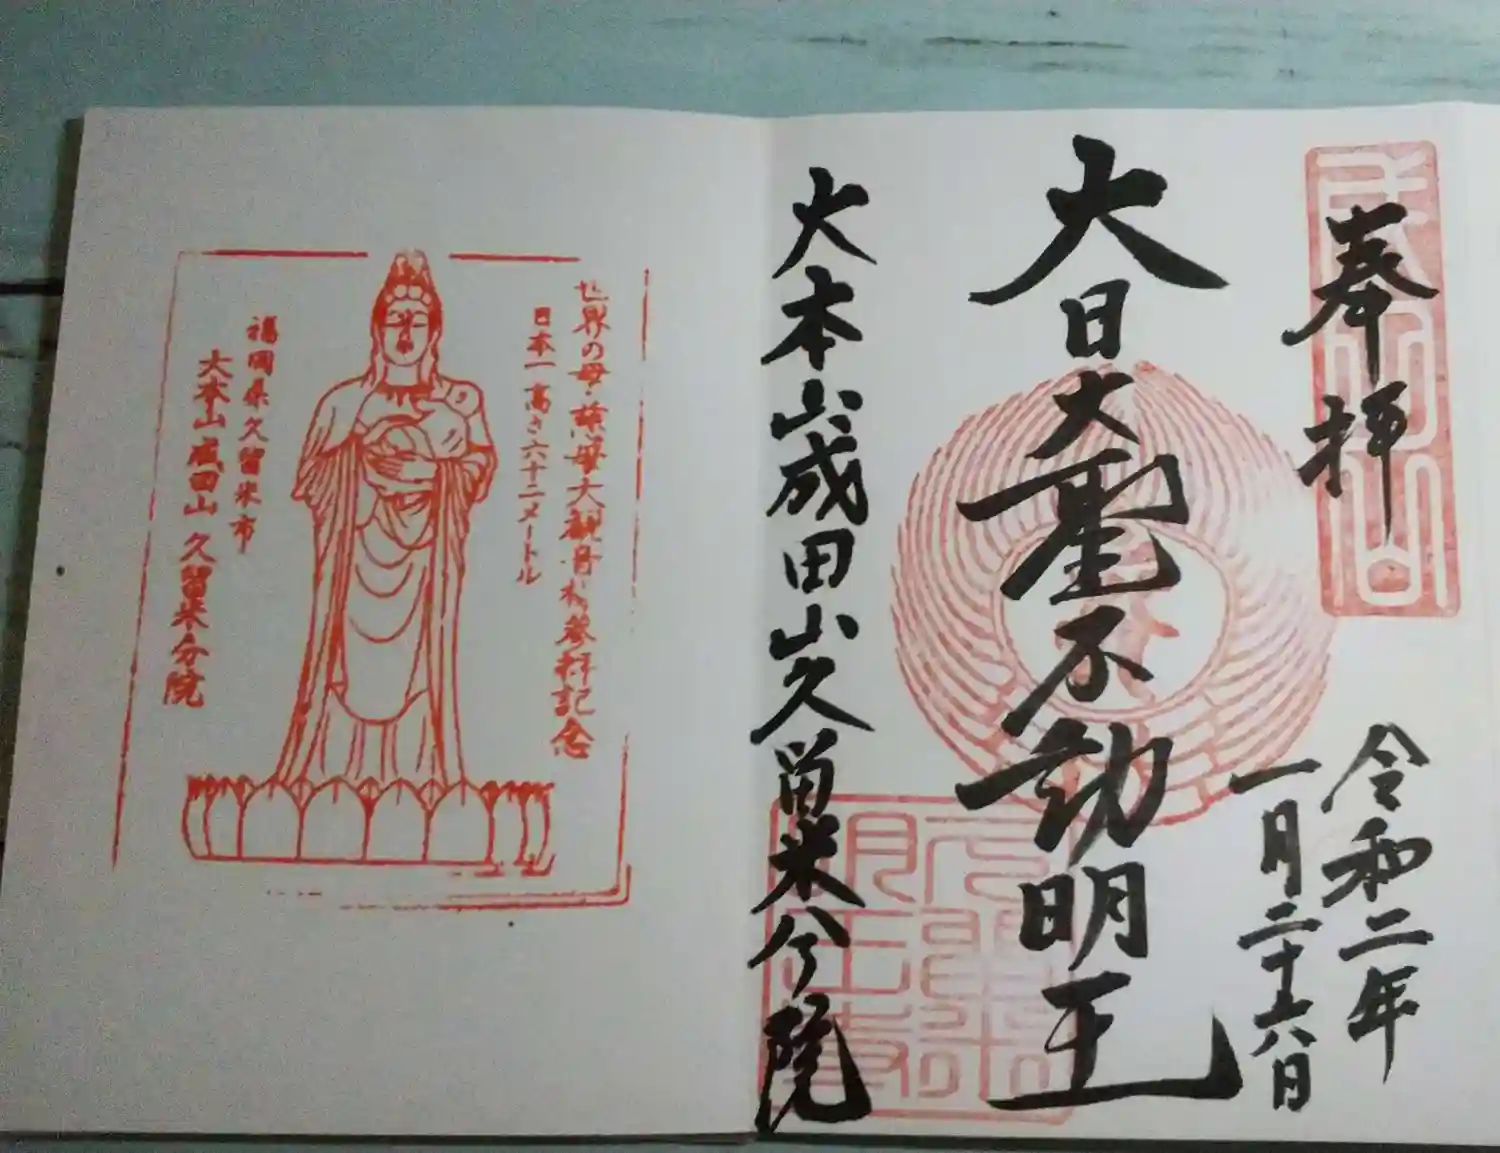 奉拝
令和二年
一月二十六日
大日大聖不動明王
大本山成田山久留米分院
世界の母・慈母大観音様参拝記念
日本一高さ六十二メートル
福岡県久留米市
大本山成田山久留米分院